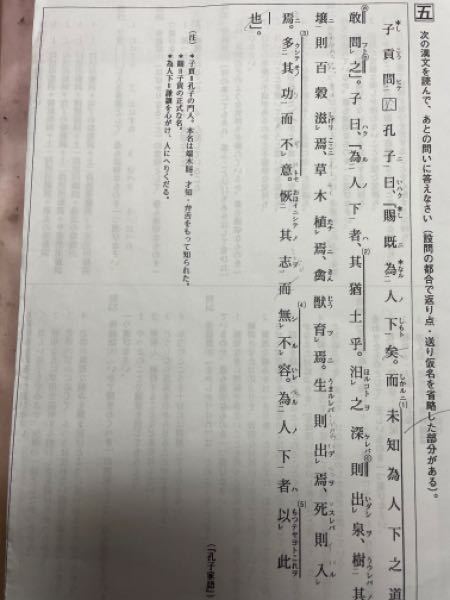 五 次の漢文を読んで、あとの問いに答えなさい(設問の都合で返り点・送り仮名を省略した部分がある)。
子貢問□孔子曰、「賜既為人下矣。而未知為人下之道
敢問之」。子曰、「為人下者、其猶土乎。汨之深則出泉、樹其
壌則百穀滋焉、草木植焉、禽獣育焉。生則出焉、死則入
焉。多其功而不意。恢其志而無不容。為人下者以此
也」。
(注)
*子貢=孔子の門人。本名は端木賜。才知・弁舌をもって知られた。
*賜=子貢の正式な名。
*為人下=謙譲を心がけ、人にへりくだる。
(『孔子家語』)